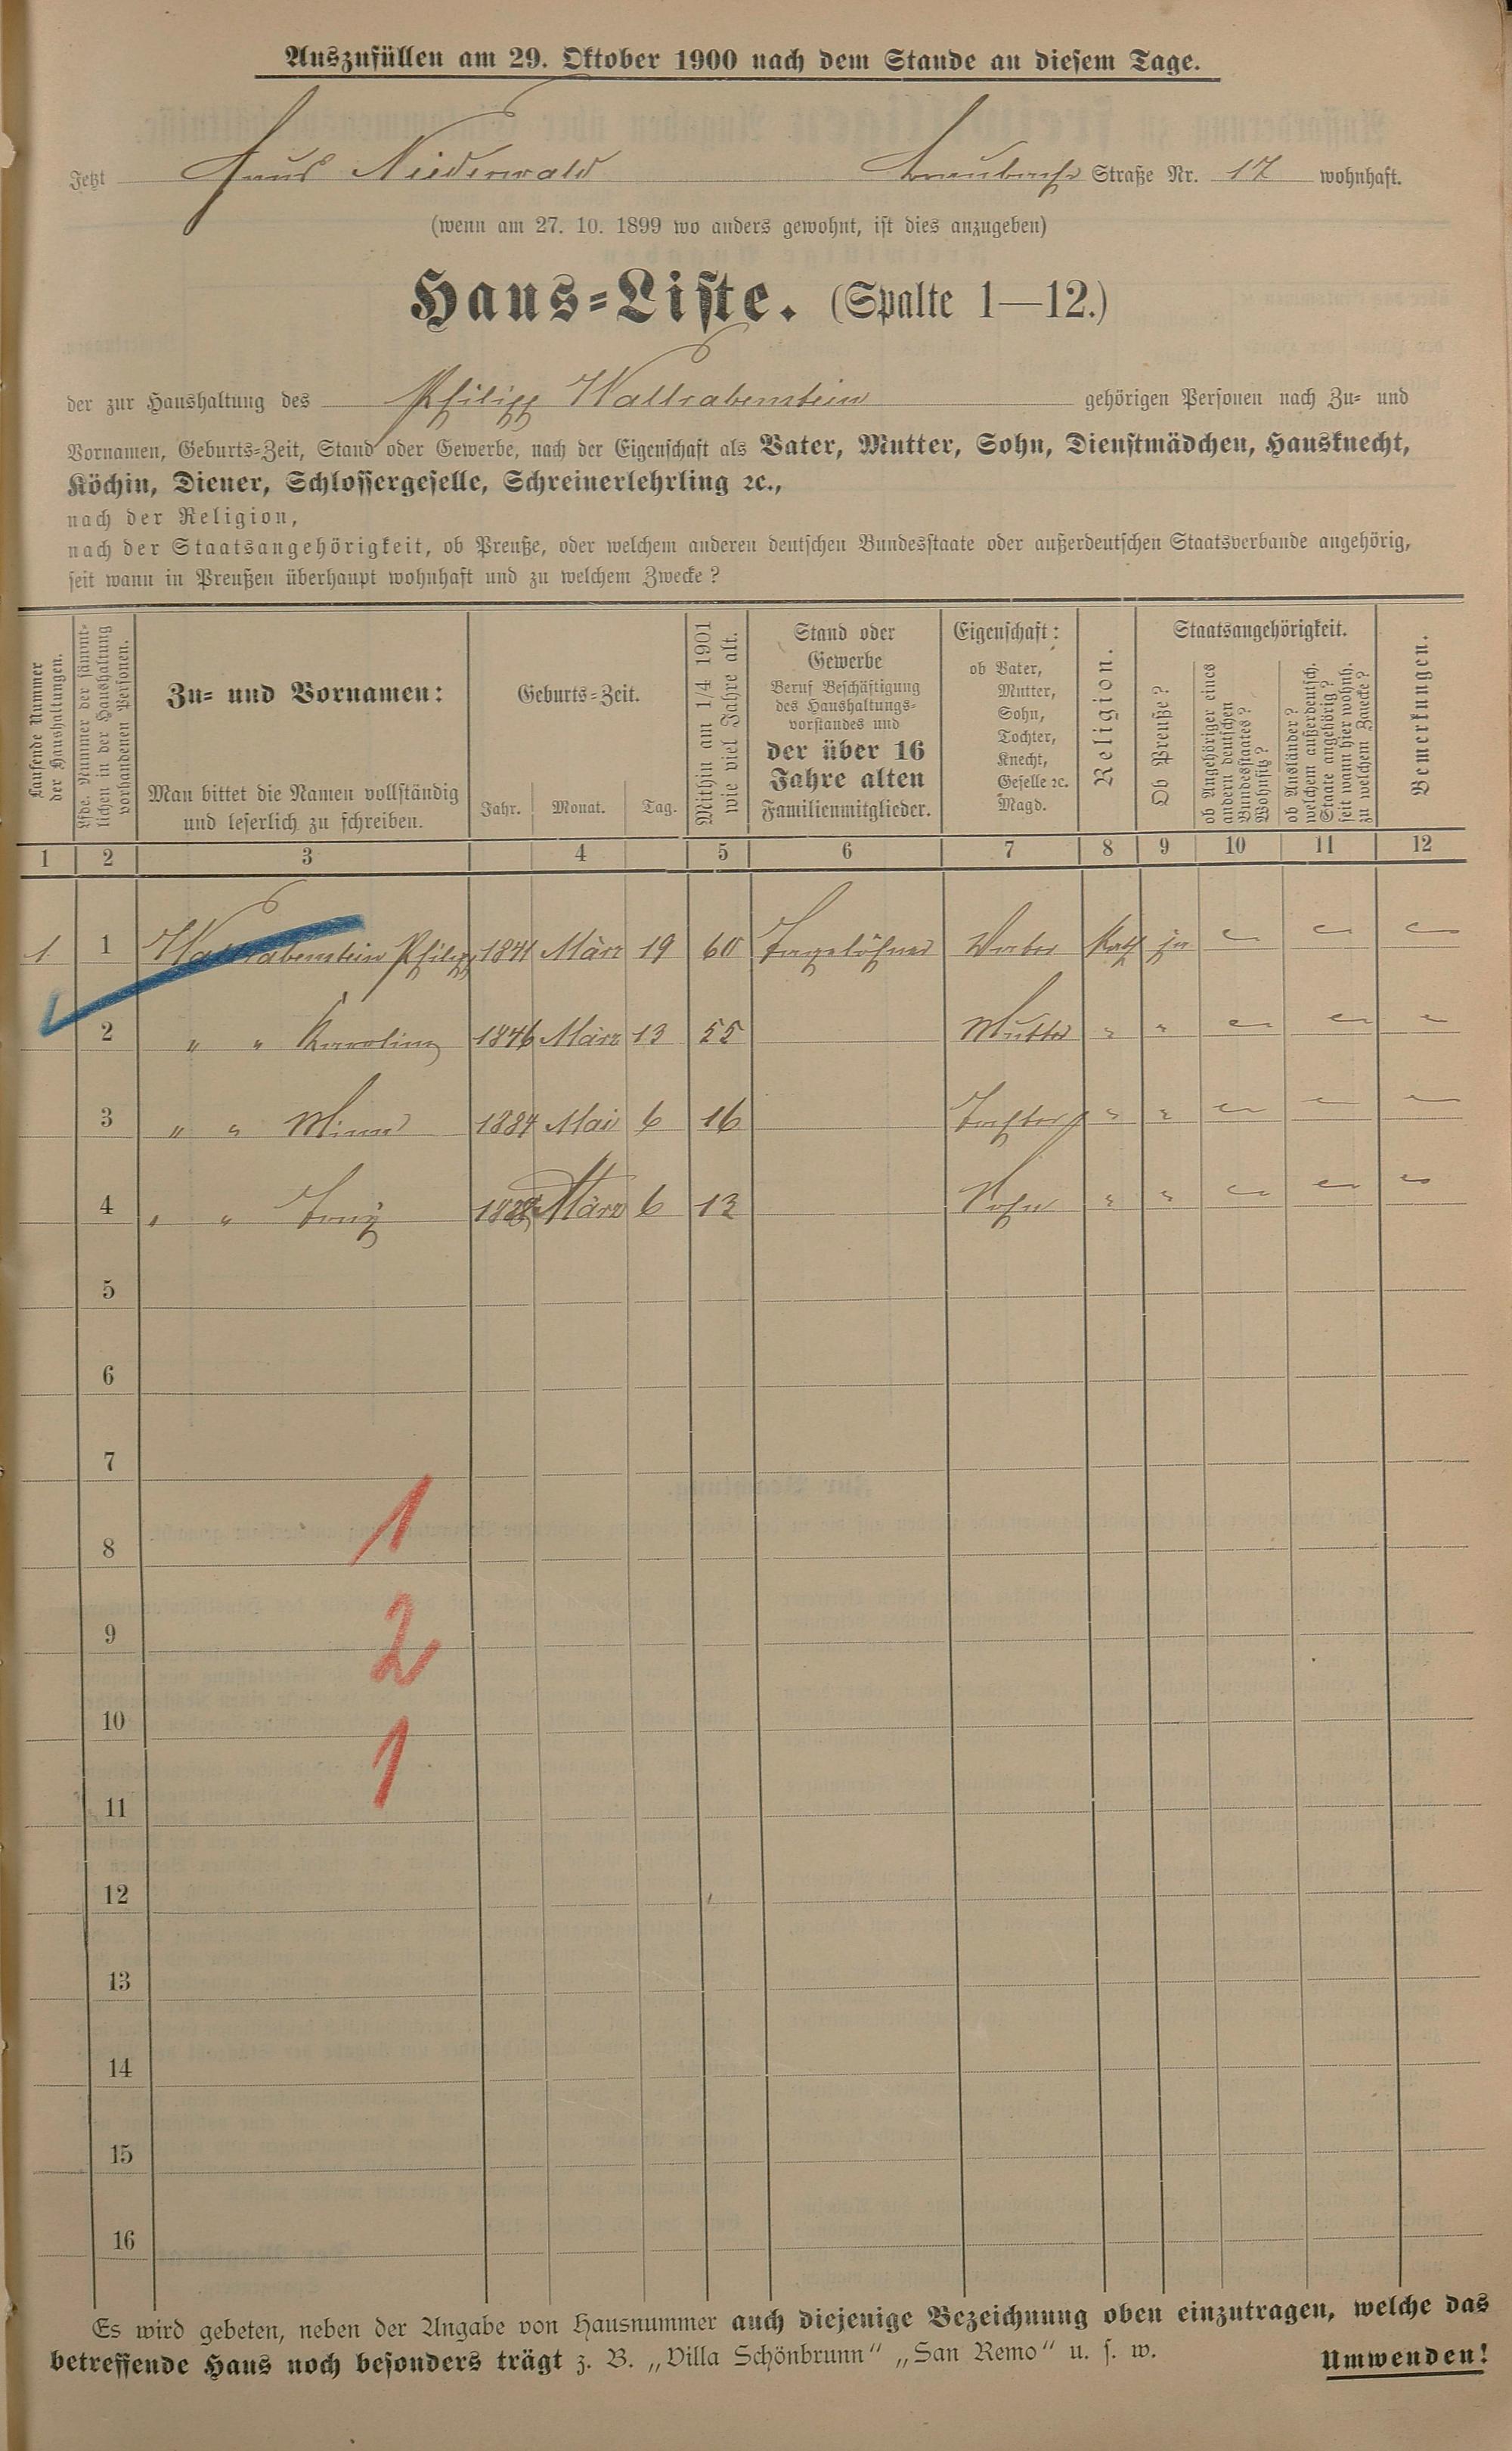 Auszufüllen am 29. Oktober 1900 nach dem Stande an diesem Tage.
Jetzt Haus Niederwald Straße Nr. 17 wohnhaft.
(wenn am 27. 10. 1899 wo anders gewohnt, ist dies anzugeben)
Haus=Liste. (Spalte 1—12.)
der zur Haushaltung des Philipp Wallrabenstein gehörigen Personen nach Zu= und
Vornamen, Geburts=Zeit, Stand oder Gewerbe, nach der Eigenschaft als Vater, Mutter, Sohn, Dienstmädchen, Hausknecht,
Köchin, Diener, Schlossergeselle, Schreinerlehrling ꝛc.,
nach der Religion,
nach der Staatsangehörigkeit, ob Preuße, oder welchem anderen deutschen Bundesstaate oder außerdeutschen Staatsverbande angehörig,
seit wann in Preußen überhaupt wohnhaft und zu welchem Zwecke?
Laufende Nummer
der Haushaltungen.
Lfde. Nummer der sämmt=
lichen in der Haushaltung
vorhandenen Personen.
Zu= und Vornamen:
Man bittet die Namen vollständig
und leserlich zu schreiben.
Geburts=Zeit.
Jahr. Monat. Tag.
Mithin am 1/4 1901
wie viel Jahre alt.
Stand oder
Gewerbe
Beruf Beschäftigung
des Haushaltungs=
vorstandes und
der über 16
Jahre alten
Familienmitglieder.
Eigenschaft:
ob Vater,
Mutter,
Sohn,
Tochter,
Knecht,
Geselle ꝛc.
Magd.
Religion.
Staatsangehörigkeit.
Ob Preuße?
ob Angehöriger eines
andern deutschen
Bundesstaates?
Wohnsitz?
ob Ausländer?
welchem außerdeutsch.
Staate angehörig?
seit wann hier wohnh.
zu welchem Zwecke?
Bemerkungen.
1 2 3 4 5 6 7 8 9 10 11 12
1 1 Wallrabenstein Philipp 1841 März 19 60 Tagelöhner Vater Kath ja
2 " " Karolina 1846 März 13 55 Mutter " "
3 " " Minna 1884 Mai 6 16 Tochter " "
4 " " März 6 13 Sohn " "
5
6
7
1
8
2
9
10
1
11
12
13
14
15
16
Es wird gebeten, neben der Angabe von Hausnummer auch diejenige Bezeichnung oben einzutragen, welche das
betreffende Haus noch besonders trägt z. B. „Villa Schönbrunn" „San Remo" u. s. w. Umwenden!